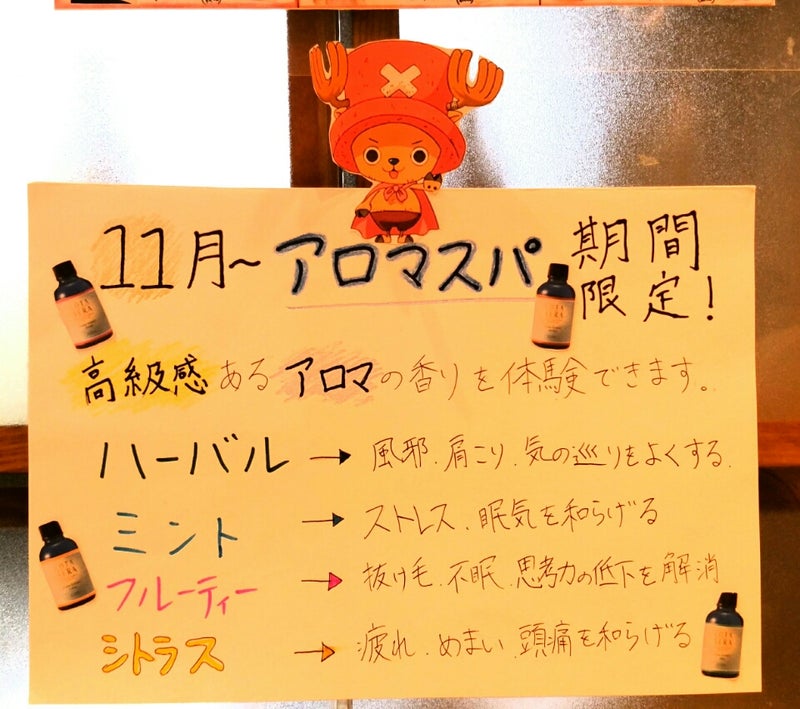 11月~ アロマスパ 期間限定!
高級感あるアロマの香りを体験できます。
ハーバル → 風邪、肩こり、気の巡りをよくする。
ミント → ストレス、眠気を和らげる
フルーティー → 抜け毛、不眠、思考力の低下を解消
シトラス → 疲れ、めまい、頭痛を和らげる